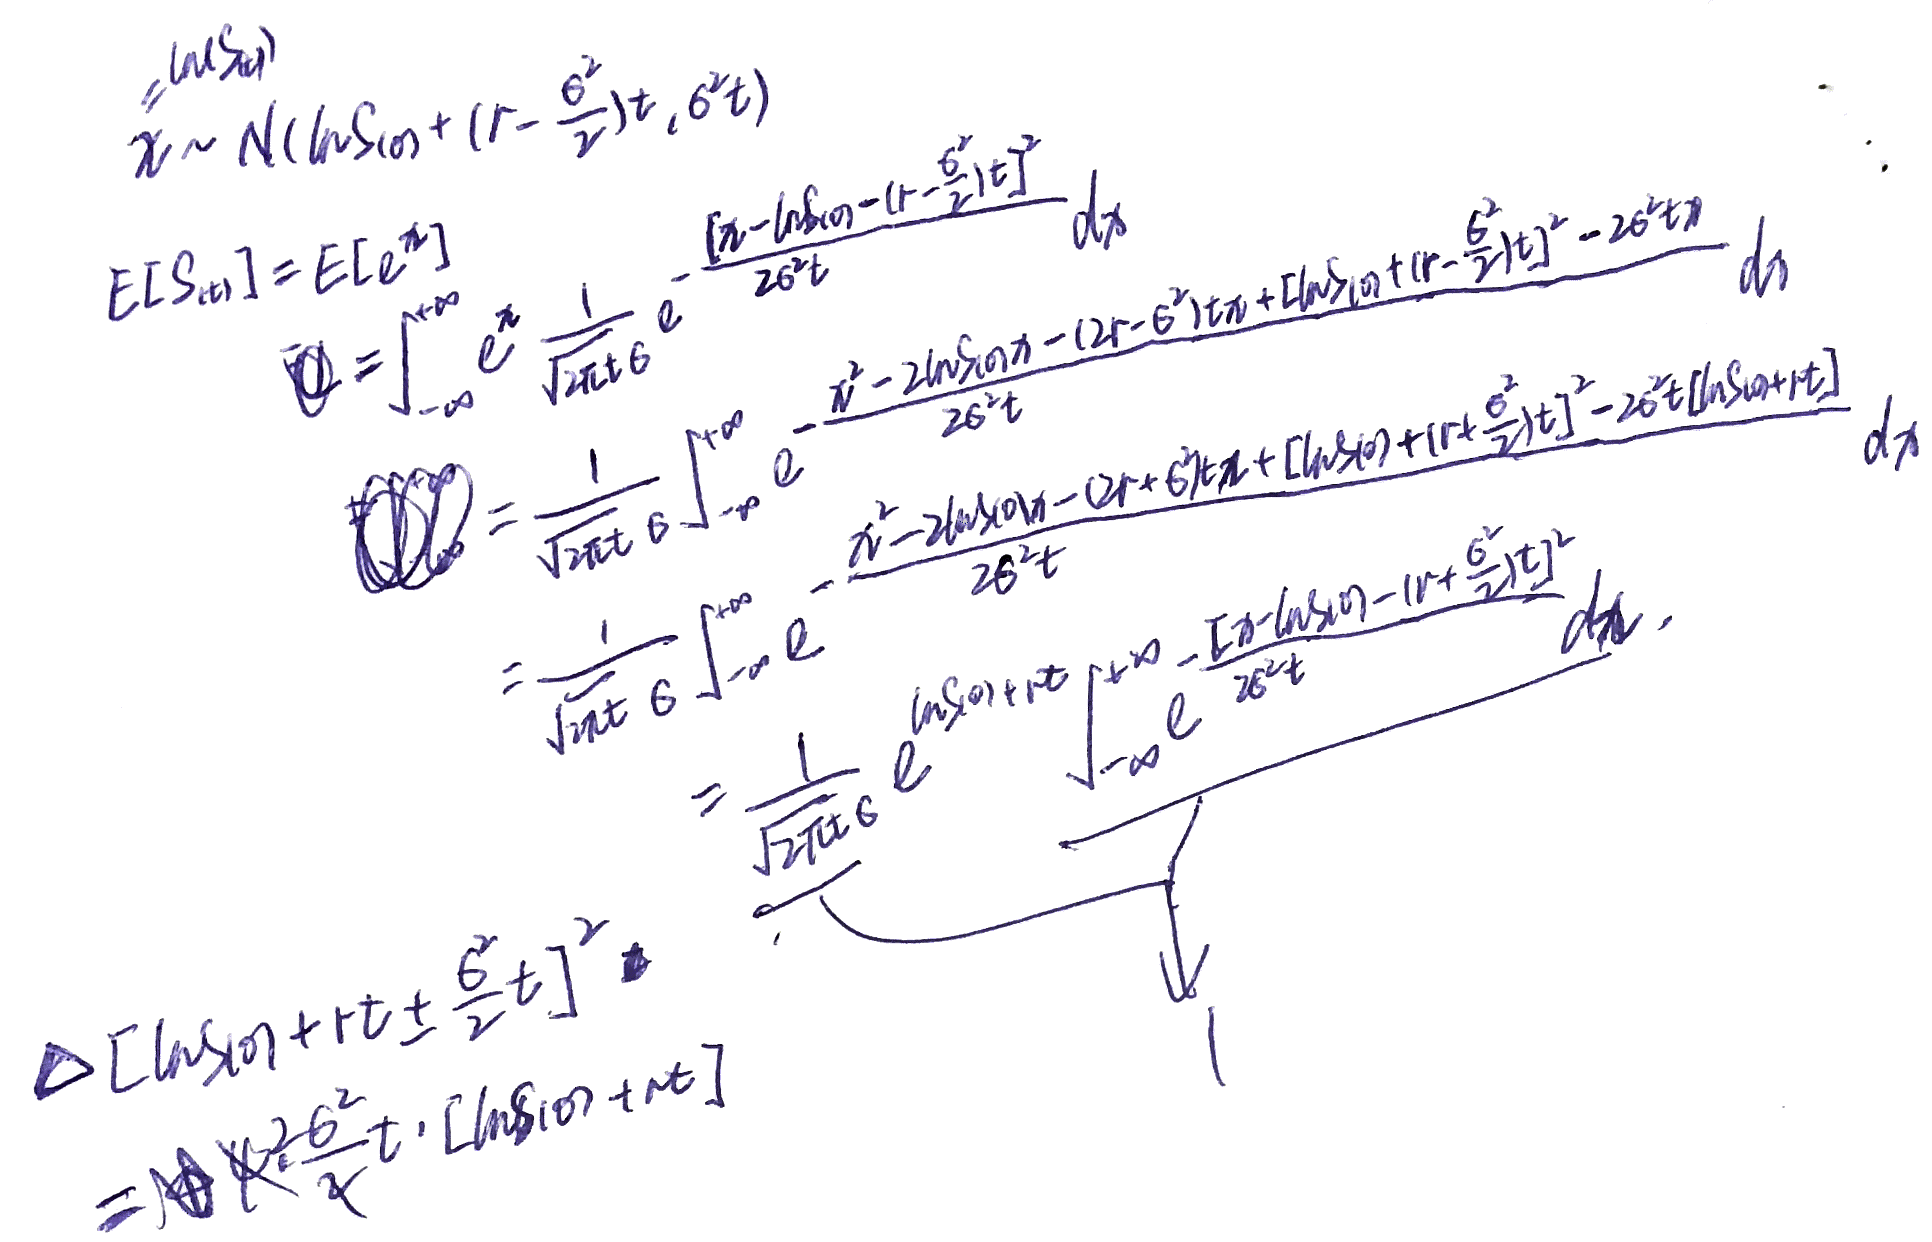 = ln(S(t))
x ~ N(lnS(0) + (r - σ²/2)t, σ²t)
E[S(t)] = E[e^x]
= ∫_{-∞}^{+∞} e^x 1/(√(2πt) σ) e^{-[x - lnS(0) - (r - σ²/2)t]²/(2σ²t)} dx
= 1/(√(2πt) σ) ∫_{-∞}^{+∞} e^{-(x² - 2lnS(0)x - (2r - σ²)tx + [lnS(0) + (r - σ²/2)t]² - 2σ²tx)/(2σ²t)} dx
= 1/(√(2πt) σ) ∫_{-∞}^{+∞} e^{-(x² - 2lnS(0)x - (2r + σ²)tx + [lnS(0) + (r + σ²/2)t]² - 2σ²t[lnS(0) + rt])/(2σ²t)} dx
= 1/(√(2πt) σ) e^{lnS(0) + rt} ∫_{-∞}^{+∞} e^{-[x - lnS(0) - (r + σ²/2)t]²/(2σ²t)} dx.
1
Δ [lnS(0) + rt ± σ²/2 t]²
= 2σ² t · [lnS(0) + rt]